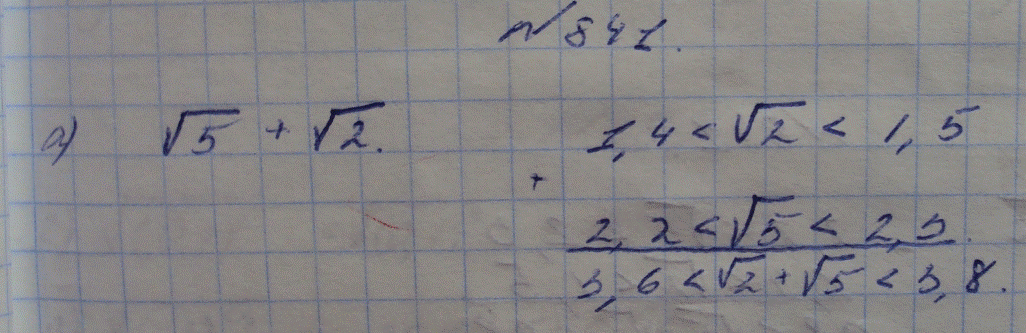 № 841.
а) √5 + √2. 1,4 < √2 < 1,5
+
2,2 < √5 < 2,3.
3,6 < √2 + √5 < 3,8.